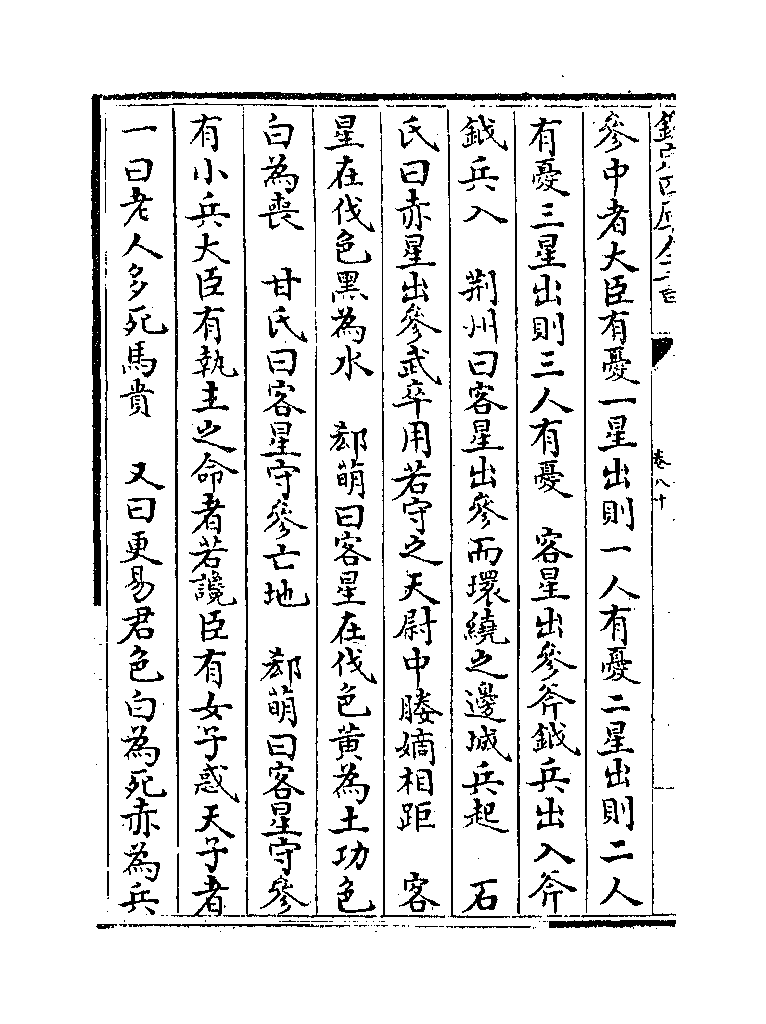 欽定四庫全書
卷八十
參中者大臣有憂一星出則一人有憂二星出則二人
有憂三星出則三人有憂　客星出參斧鉞兵出入斧
鉞兵入　荆州曰客星出參而環繞之邊城兵起　石
氏曰赤星出參武卒用若守之天尉中媵嫡相距　客
星在伐色黑為水　郄萌曰客星在伐色黄為土功色
白為喪　甘氏曰客星守參亡地　郄萌曰客星守參
有小兵大臣有執主之命者若讒臣有女子惑天子者
一曰老人多死馬貴　又曰更易君色白為死赤為兵